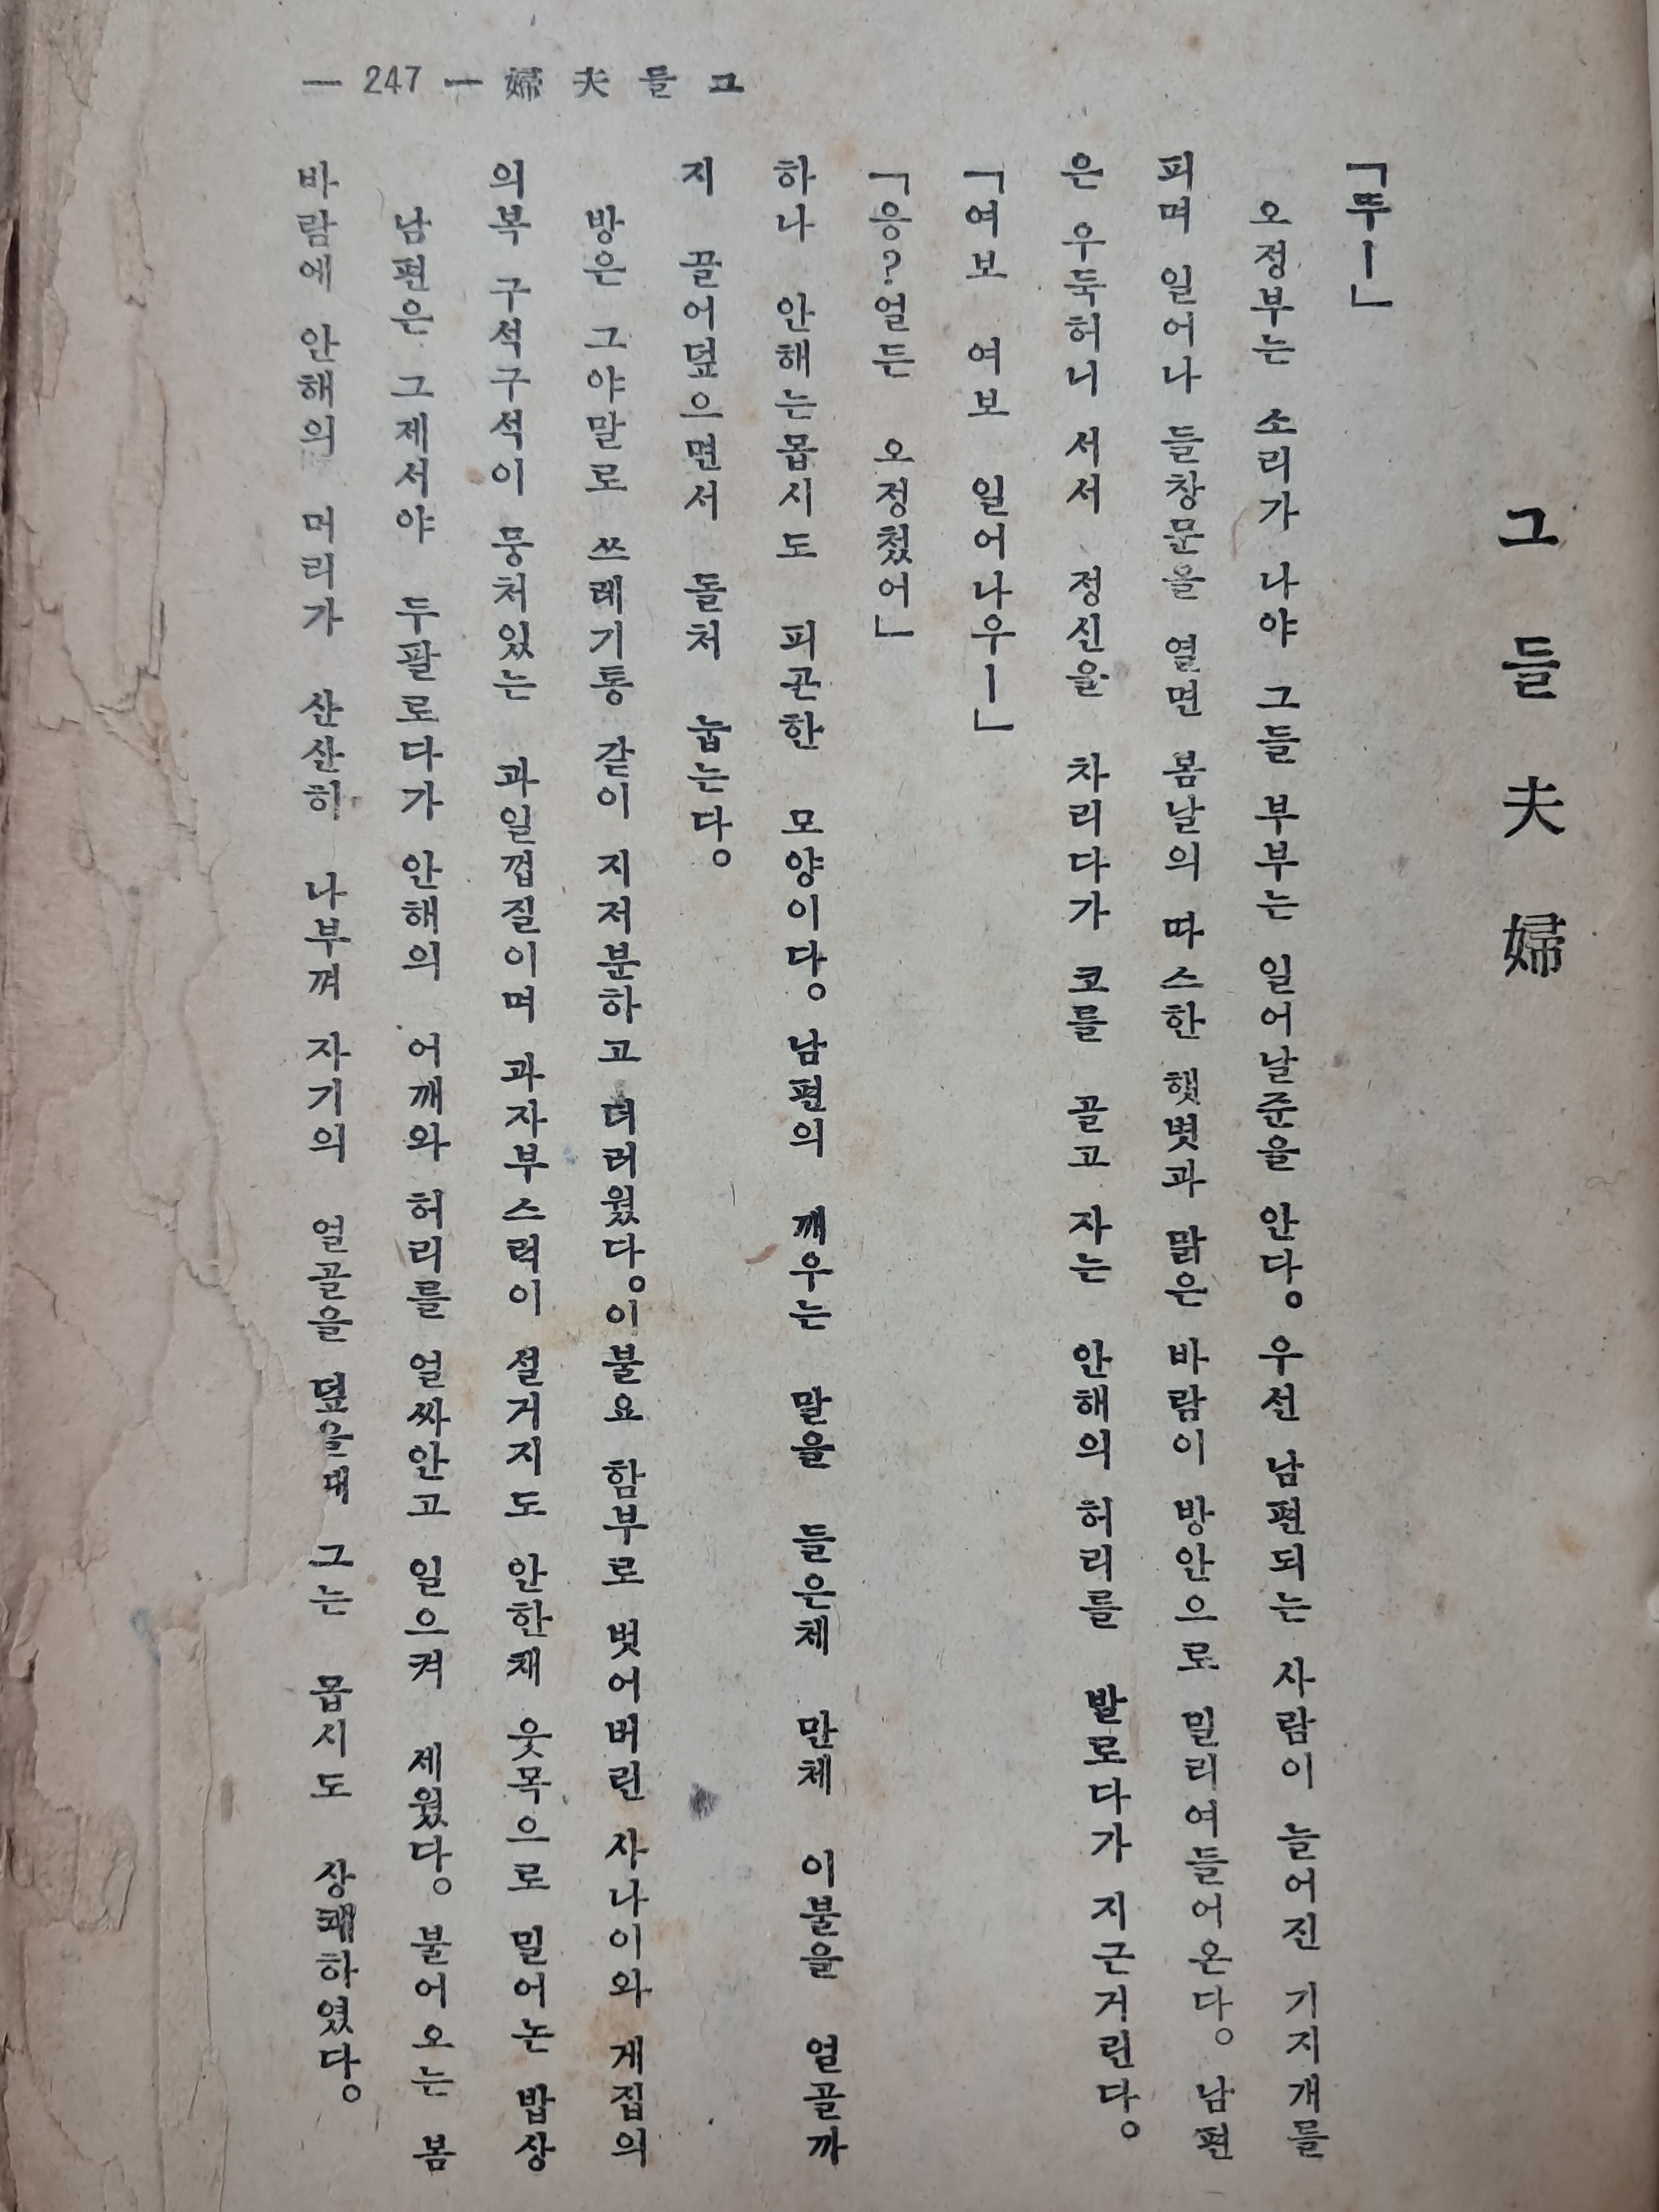 그들夫婦
「뚜ー」
오정부는 소리가 나야 그들 부부는 일어날준을 안다。 우선 남편되는 사람이 늘어진 기지개를
피며 일어나 들창문을 열면 봄날의 따스한 햇볓과 맑은 바람이 방안으로 밀리여들어온다。 남편
은 우둑허니 서서 정신을 차리다가 코를 골고 자는 안해의 허리를 발로다가 지근거린다。
「여보 여보 일어나우ー」
「응?얼든 오정첬어」
하나 안해는몹시도 피곤한 모양이다。 남편의 깨우는 말을 들은체 만체 이불을 얼골까
지 끌어덮으면서 돌처 눕는다。
방은 그야말로 쓰레기통 같이 지저분하고 더러웠다。이불요 함부로 벗어버린 사나이와 게집의
의복 구석구석이 뭉처있는 과일껍질이며 과자부스럭이 설거지도 안한채 웃목으로 밀어논 밥상
남편은 그제서야 두팔로다가 안해의 어깨와 허리를 얼싸안고 일으켜 세웠다。 불어오는 봄
바람에 안해의 머리가 산산히 나부껴 자기의 얼골을 덮을때 그는 몹시도 상쾌하였다。
— 247 — 婦夫들그